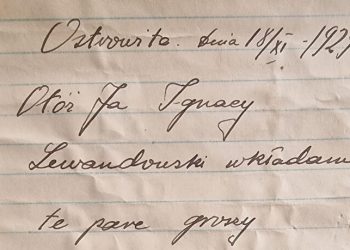 Ostrowite. dnia 18/XI - 192
Otóż Ja Ignacy
Lewandowski wkładam
te pare groszy